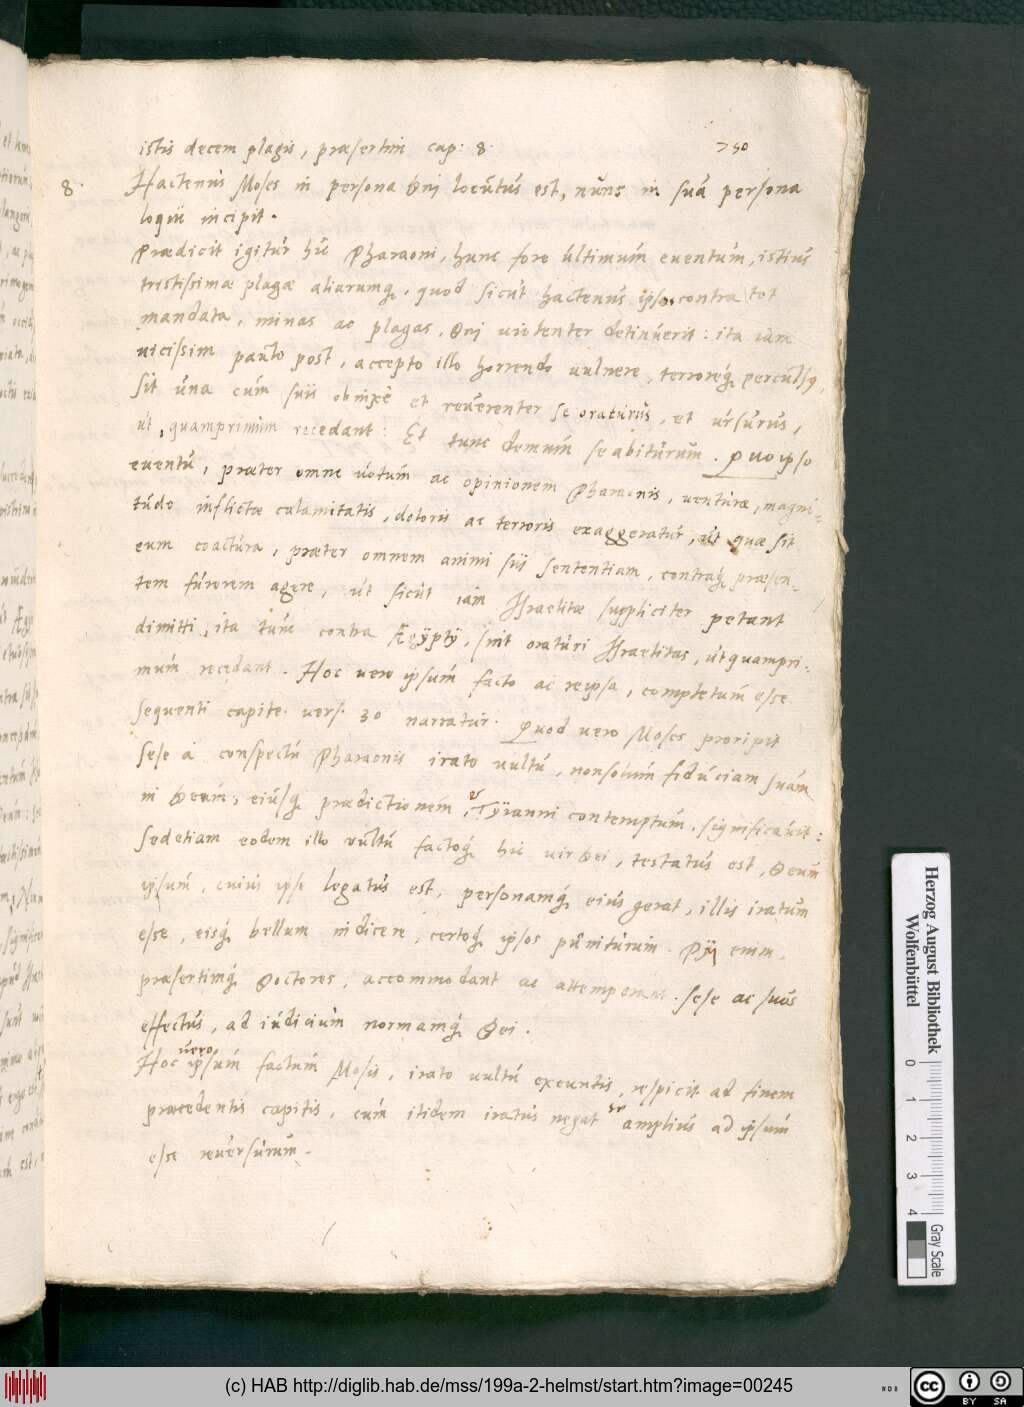 750
istis decem plagis, præsertim cap: 8.
8. Hactenus Moses in persona Dnj locutus est, nunc in sua persona
loqui incipit.
Prædicit igitur hic Pharaoni, hunc fore ultimum eventum, istius
tristissimæ plagæ aliarumq, quod sicut hactenus ipse contra tot
mandata, minas ac plagas, Dnj violenter detinuerit: ita iam
vicissim paulo post, accepto illo horrendo vulnere, terroreq percussus,
sit una cum suis obnixè et reverenter se oraturus, et ursurus,
ut, quamprimum recedant: Et tunc demum se abiturum. Quo ipso
eventu, præter omne votum ac opinionem Pharaonis, venturæ, magni-
tudo inflictæ calamitatis, doloris ac terroris exaggeratur, ut quæ sit
eum coactura, præter omnem animi sui sententiam, contraq præsen-
tem furorem agere, ut sicut iam Israelitæ suppliciter petant
dimitti, ita tunc contra Ægÿptÿ, sint oraturi Israelitas, ut quampri-
mum recedant. Hoc vero ipsum facto ac reipsa, completum esse
sequenti capite. vers. 30 narratur. Quod vero Moses proripit
sese a conspectu Pharaonis irato vultu, non solum fiduciam suam
in Deum, eiusq prædictionem, et Tÿranni contemptum, significavit:
sed etiam eodem illo vultu factoq hic vir Dei, testatus est, Deum
ipsum, cuius ipse legatus est, personamq eius gerat, illis iratum
esse, eisq bellum indicere, certoq ipsos puniturum. Pÿ enim,
præsertimq Doctores, accommodant ac attemperant sese ac suos
effectus, ad iudicium normamq Dei.
Hoc vero ipsum factum Mosis, irato vultu exeuntis, respicit ad finem
præcedentis capitis, cum itidem iratus negat se amplius ad ipsum
esse reversurum.
Herzog August Bibliothek
Wolfenbüttel
0 1 2 3 4
Gray Scale
(c) HAB http://diglib.hab.de/mss/199a-2-helmst/start.htm?image=00245
cc BY SA